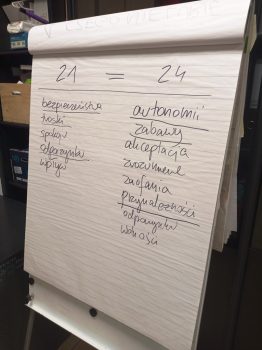 21 = 24
bezpieczeństwa
troski
spokoju
odpoczynku
wpływu
autonomii
zabawy
akceptacja
zrozumienie
zaufania
przynależności
odpoczynku
wolności